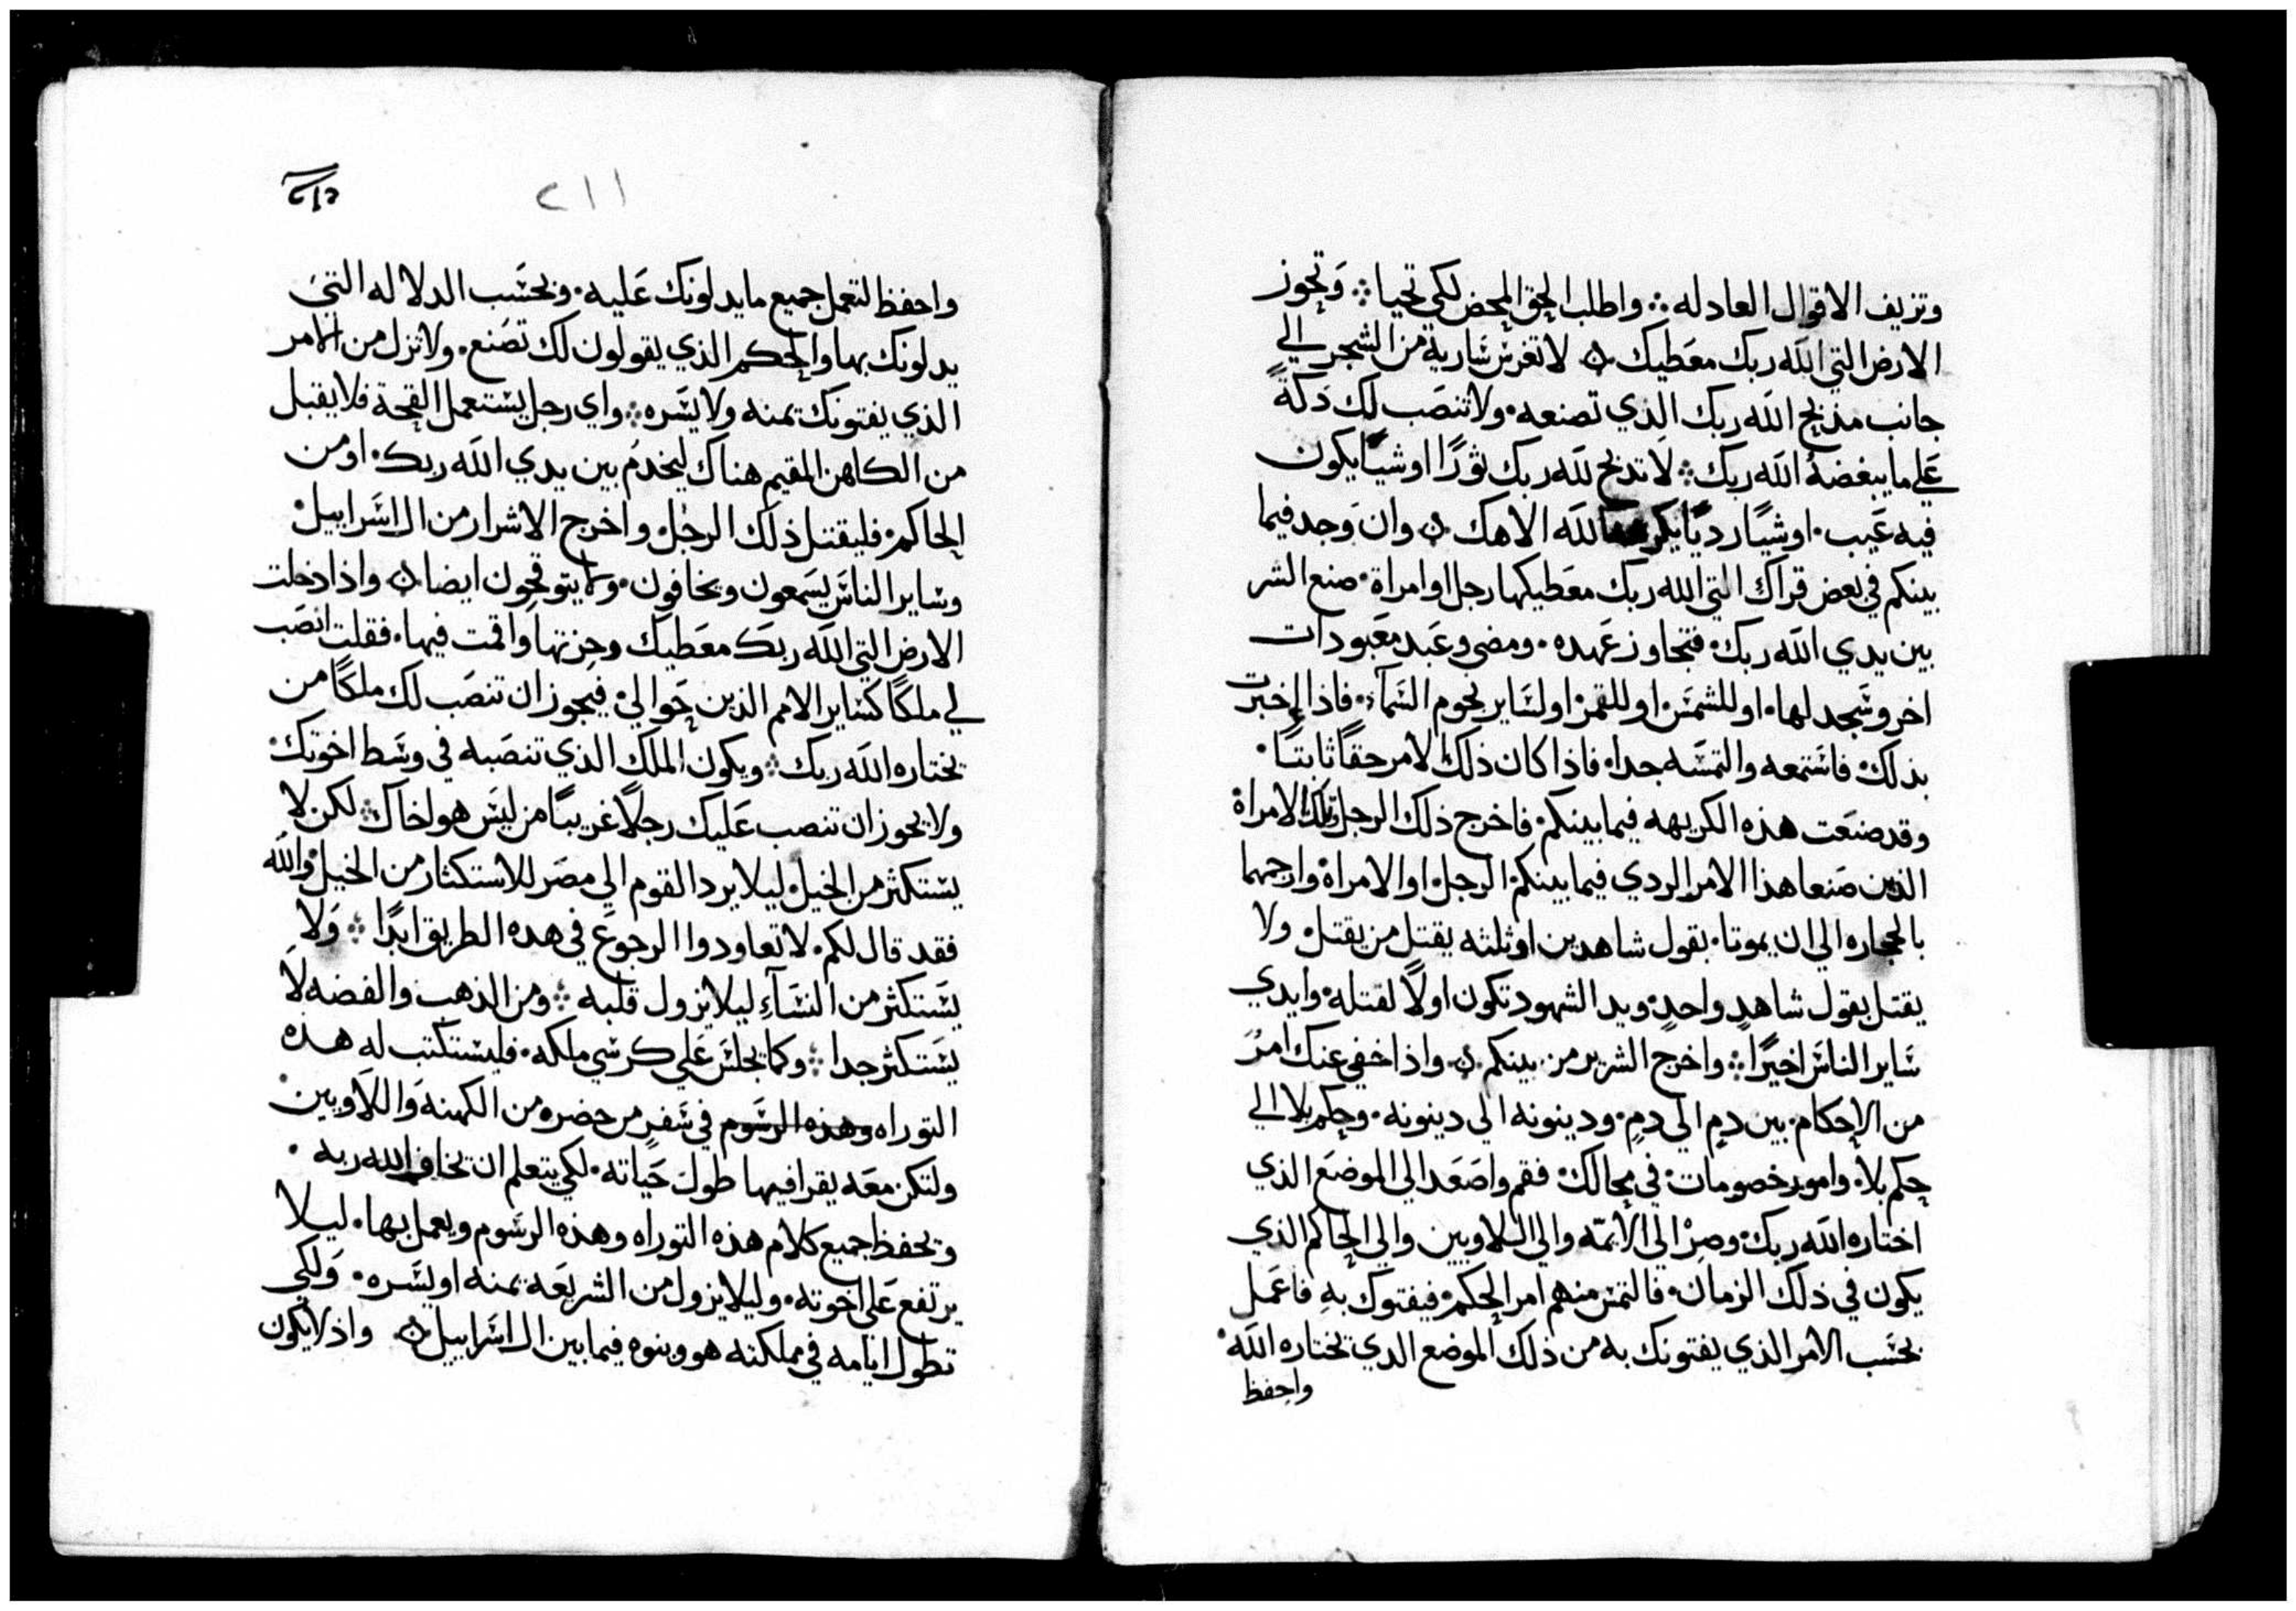 وتزيف الاقوال العادله ⁘ واطلب الحق المحض لكي تحيا ⁘ وَتحوز
الارض التي الله ربك معَطيك ن لا تغرس سَارية من الشجر الي
جانب مذبح الله ربك الذي تصنعه ٠ ولا تنصَب لك دَكةً
عَلي ما يبغضهُ الله ربك ⁘ لا تدبح لله ربك ثورًا او شيًا يكون
فيه عَيب ٠ او شيًا رديًا يكرهه الله الاهك ن وان وَجد فيما
بينكم في بعض قراك التي الله ربك معَطيكها رجل او امراة ٠ صنع الشر
بين يدي الله ربك ٠ فتجاوز عَهده ٠ ومضي وعَبد معَبودات
اخر وسَجد لها ٠ او للشمسَ ٠ او للقمر ٠ او لسَاير نجوم السَمآء ٠ فاذا اخبرت
بذلك ٠ فاسَتمعه والتمسَه جدا ٠ فاذا كان ذلك الامر حقاً ثابتًا ٠
وقد صنعَت هذه الكريهه فيما بينكم ٠ فاخرج ذلك الرجل وتلك الامراة
الذين صَنعا هذا الامر الردي فيما بينكم ٠ الرجل ٠ او الامراة ٠ وارجمهما
بالحجاره الي ان يموتا ٠ بقول شاهدين او ثلثه يقتل من يقتل ٠ ولا
يقتل بقول شاهدٍ واحدٍ ٠ ويد الشهود تكون اولًا لقتله ٠ وايدي
سَاير الناسَ اخيرًا ⁘ واخرج الشرير من بينكم ن واذا خفي عنك امرُ
من الاحكام ٠ بين دمٍ الي دمٍ ٠ ودينونه الي دينونه ٠ وحكم بلا الي
حكم بلا ٠ وامور خصومات ٠ في محالك ٠ فقم واصَعَد الي الموضَع الذي
اختاره الله ربك ٠ وصِرْ الي الائمّه والي اللاويين والي الحاكم الذي
يكون في ذلك الزمان ٠ فالتمسَ منهم امر الحكم ٠ فيفتوك بهِ فاعَمل
بحسَب الامر الذي يفتونك به من ذلك الموضع الدي يختاره الله ٠
واحفظ
٢١١
واحفظ لتعمل جميع ما يدلونك عَليه ٠ وبحسَب الدلاله التي
يدلونك بها والحكم الذي يقولون لك تصَنع ٠ ولا تزل من الامر
الذي يفتونك يمنه ولا يسَره ⁘ واي رجل يسَتعمل القحة فلا يقبل
من الكاهن المقيم هناك ليخدمُ بين يدي الله ربك ٠ او من
الحاكم ٠ فليقتل ذلك الرجل ٠ واخرج الاشرار من ال اسَراييل ٠
وسَاير الناسَ يسَمعون ويخافون ٠ ولا يتوقحون ايضا ن واذا دخلت
الارض التي الله ربك معَطيك وحِزتها واقمت فيها ٠ فقلت انصَب
لي ملكًا كسَاير الامم الذين حَوالي ٠ فيجوز ان تنصَب لك ملكًا من
يختاره الله ربك ⁘ ويكون الملك الذي تنصَبه في وسَط اخوتك ٠
ولا يجوز ان تنصب عَليك رجلًا غريبًا من ليسَ هو اخاك ⁘ لكن لا
يسَتكثر من الخيل ٠ ليلا يرد القوم الي مصَر للاستكثار من الخيل ٠ والله
فقد قال لكم ٠ لا تعاودوا الرجوعَ في هده الطريق ابدًا ⁘ وَلا
يسَتكثر من النسَآءِ ليلا يزول قلبه ⁘ ومن الذهب والفضه لَا
يسَتكثر جدا ⁘ وكما يجلسَ عَلي كرسَي ملكه ٠ فليسَتكتب له هذه
التوراه وهذه الرسَوم في سَفرٍ من حضره من الكهنه وَاللاويين ٠
ولتكن معَه يقرا فيها طول حَياته ٠ لكي يتعلم ان يخاف الله ربه ٠
ويحفظ جميع كلام هذه التوراه وهذه الرسَوم ويعمل بها ٠ ليلا
يرتفع عَلي اخوته ٠ وليلا يزول من الشريعَه يمنه او يسَره ٠ وَلكي
تطول ايامه في مملكته هو وبنوه فيما بين ال اسَراييل ن واذ لا يكون